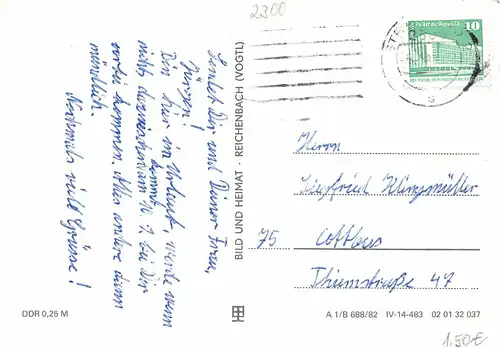 2300
Palast der Republik
10
DDR
Dir und Deiner Frau,
Bin hier im Urlaub, werde wenn
bei Dir
vorbei kommen. Alles andere dann
mündlich.
Nochmals viele Grüsse!
BILD UND HEIMAT · REICHENBACH (VOGTL)
Herrn
Siegfried Klingsmüller
75 Cottbus
Thiemstraße 47
DDR 0,25 M
A 1/B 688/82 IV-14-483 02 01 32 037
1,50€